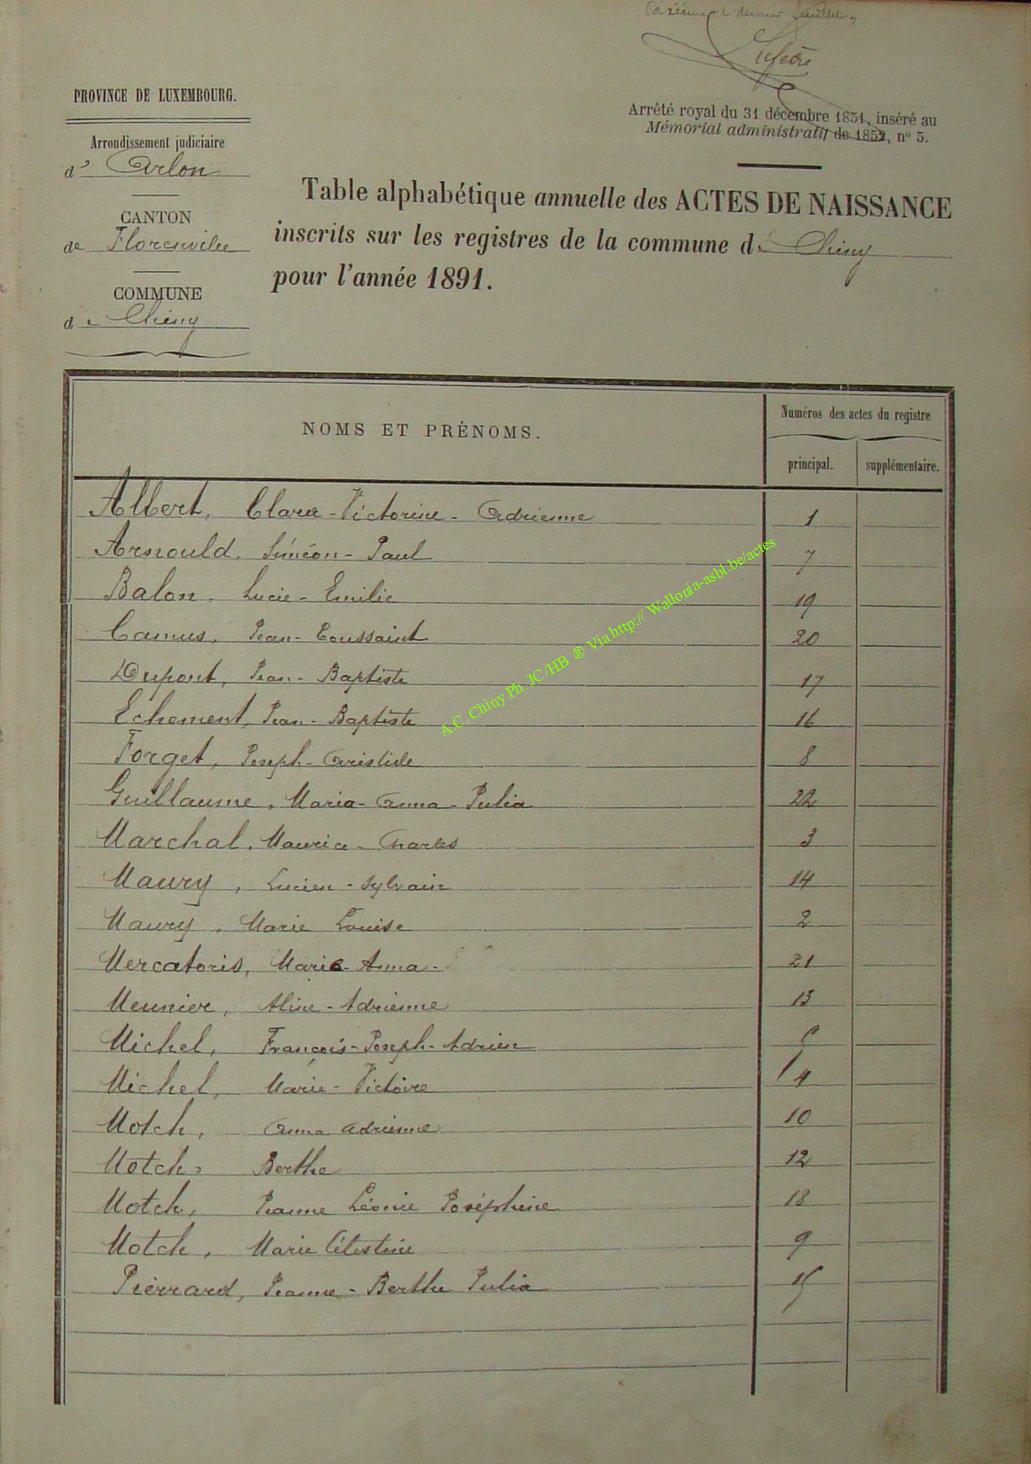 Troisième et dernier feuillet,
PROVINCE DE LUXEMBOURG.
Arrêté royal du 31 décembre 1851, inséré au
Mémorial administratif de 1852, nº 5.
Arrondissement judiciaire
d' Arlon
CANTON
de Florenville
COMMUNE
de Chiny
Table alphabétique annuelle des ACTES DE NAISSANCE
inscrits sur les registres de la commune de Chiny
pour l'année 1891.
NOMS ET PRÉNOMS.
Numéros des actes du registre
principal. supplémentaire.
Albert, Clara-Victorine-Adrienne 1
Arnould, Siméon-Paul 7
Balon, Lucie-Emilie 19
Camus, Jean-Toussaint 20
Dupont, Jean-Baptiste 17
Echement, Jean-Baptiste 16
Forget, Joseph-Aristide 8
Guillaume, Maria-Anna-Julia 22
Marchal, Maurice-Charles 3
Maury, Lucien-Sylvain 14
Maury, Marie Louise 2
Mercatoris, Marie-Anna 21
Meunier, Aline-Adrienne 13
Michel, François-Joseph-Adrien
Michel, Marie-Victoire 4
Motch, Anna Adrienne 10
Motch, Berthe 12
Motch, Jeanne Léonie Joséphine 18
Motch, Marie Célestine 9
Pierrard, Jeanne-Berthe Julia 15
A.C. Chiny Ph. JC/HB ® Via http:// Wallonia-asbl.be/actes